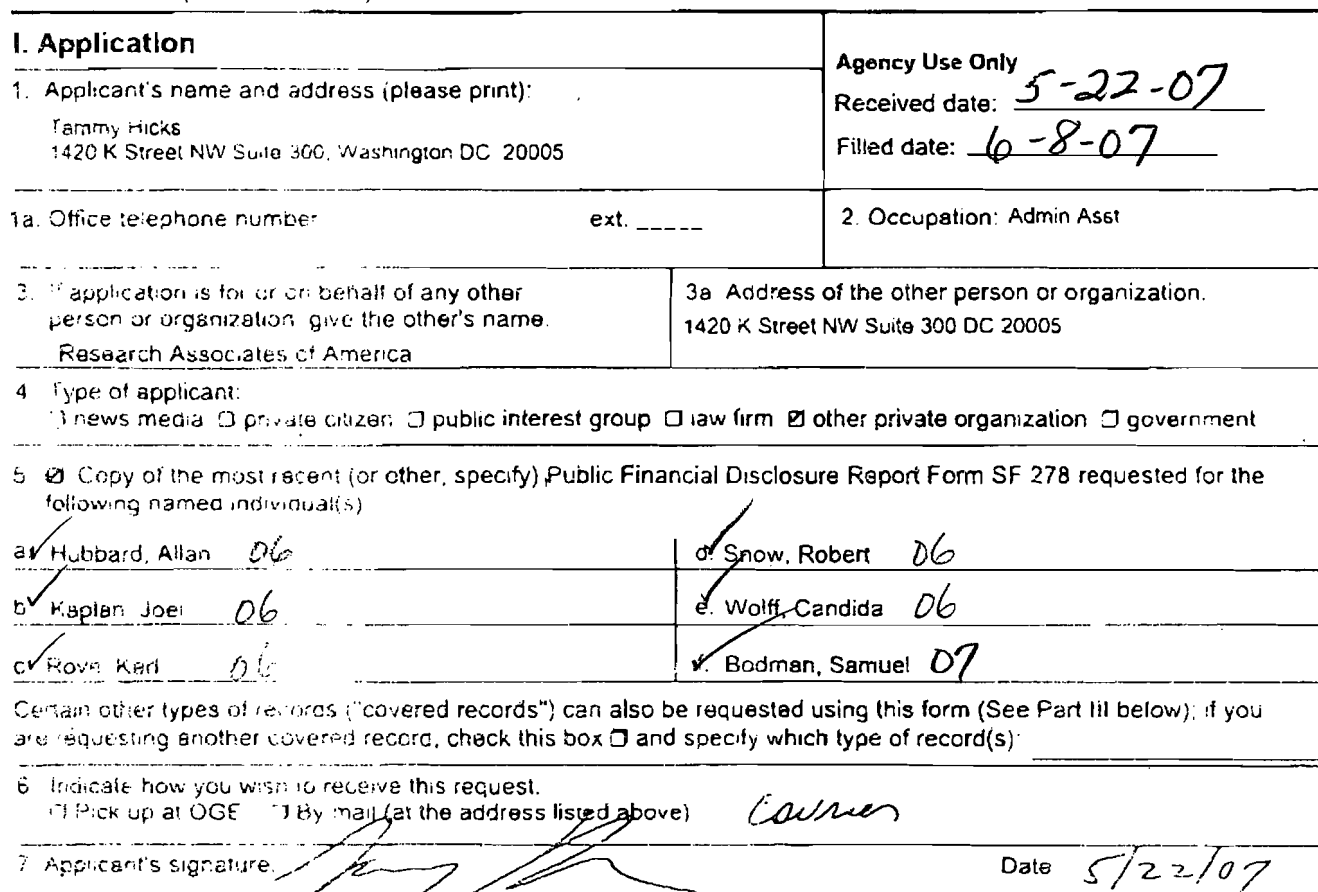 I. Application
Agency Use Only
Received date: 5-22-07
Filled date: 6-8-07
1. Applicant's name and address (please print):
Tammy Hicks
1420 K Street NW Suite 300, Washington DC 20005
1a. Office telephone number ext. _____
2. Occupation: Admin Asst
3. If application is for or on behalf of any other
person or organization give the other's name.
Research Associates of America
3a Address of the other person or organization.
1420 K Street NW Suite 300 DC 20005
4 Type of applicant:
☐ news media ☐ private citizen ☐ public interest group ☐ law firm ☑ other private organization ☐ government
5 ☑ Copy of the most recent (or other, specify) Public Financial Disclosure Report Form SF 278 requested for the
following named individual(s)
a✓ Hubbard, Allan 06
d✓ Snow, Robert 06
b✓ Kaplan Joel 06
e. Wolff, Candida 06
c✓ Rove Karl 06
f. Bodman, Samuel 07
Certain other types of records ("covered records") can also be requested using this form (See Part III below); if you
are requesting another covered record, check this box ☐ and specify which type of record(s):
6 Indicate how you wish to receive this request.
☐ Pick up at OGE ☐ By mail (at the address listed above) Courier
7 Applicant's signature.
Date 5/22/07